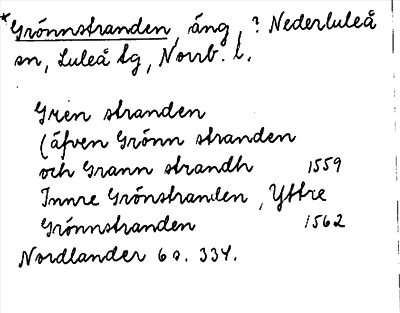 *Grönnstranden, äng, ? Nederluleå
sn, Luleå tg, Norrb. l.
Gren stranden
(äfven Grönn stranden
och Grann strandh 1559
Innre Grönstranden, Yttre
Grönnstranden 1562
Nordlander 6 s. 334.